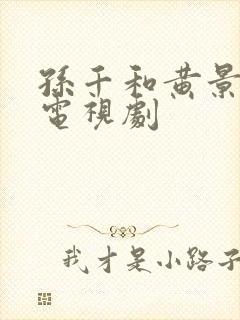 孫千和黃景
電視劇
我才是小路子